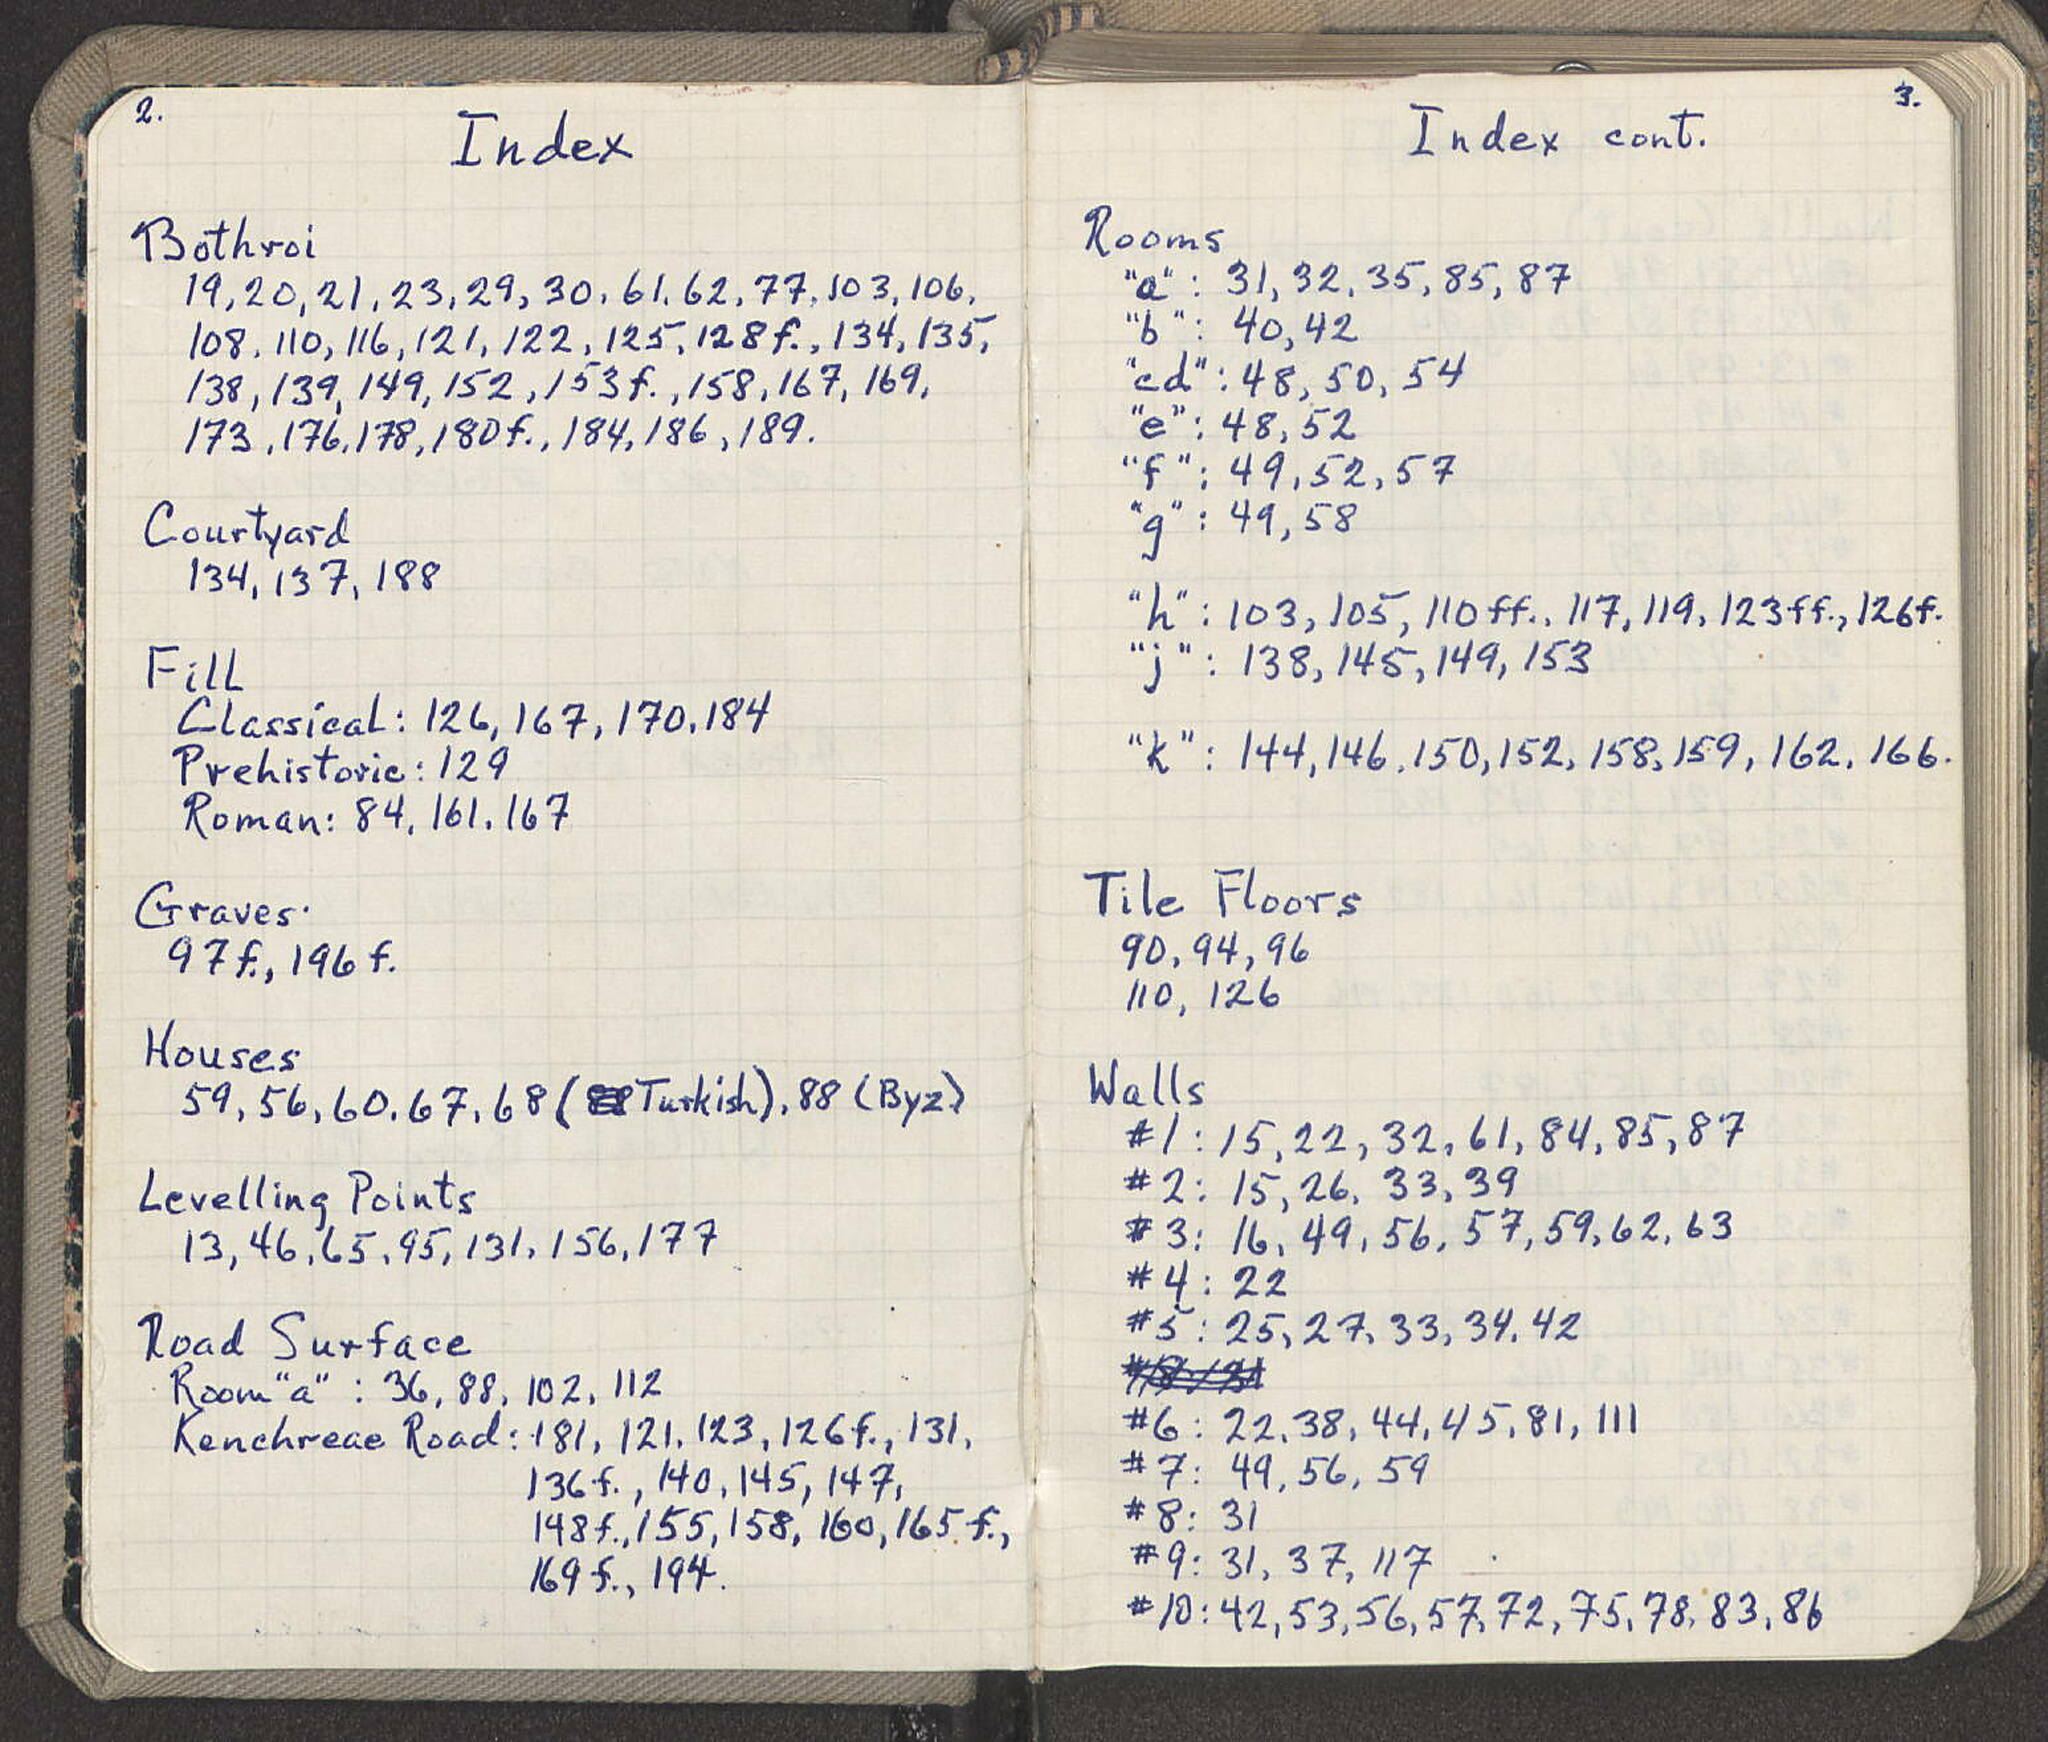 2.
Index
Bothroi
19, 20, 21, 23, 29, 30, 61, 62, 77, 103, 106,
108, 110, 116, 121, 122, 125, 128f., 134, 135,
138, 139, 149, 152, 153f., 158, 167, 169,
173, 176, 178, 180f., 184, 186, 189.
Courtyard
134, 137, 188
Fill
Classical: 126, 167, 170, 184
Prehistoric: 129
Roman: 84, 161, 167
Graves
97f., 196f.
Houses
59, 56, 60, 67, 68 (Turkish), 88 (Byz)
Levelling Points
13, 46, 65, 95, 131, 156, 177
Road Surface
Room "a": 36, 88, 102, 112
Kenchreae Road: 181, 121, 123, 126f., 131,
136f., 140, 145, 147,
148f., 155, 158, 160, 165f.,
169f., 194.
3.
Index cont.
Rooms
"a": 31, 32, 35, 85, 87
"b": 40, 42
"cd": 48, 50, 54
"e": 48, 52
"f": 49, 52, 57
"g": 49, 58
"h": 103, 105, 110ff., 117, 119, 123ff., 126f.
"j": 138, 145, 149, 153
"k": 144, 146, 150, 152, 158, 159, 162, 166.
Tile Floors
90, 94, 96
110, 126
Walls
#1: 15, 22, 32, 61, 84, 85, 87
#2: 15, 26, 33, 39
#3: 16, 49, 56, 57, 59, 62, 63
#4: 22
#5: 25, 27, 33, 34, 42
#6: 22, 38, 44, 45, 81, 111
#7: 49, 56, 59
#8: 31
#9: 31, 37, 117
#10: 42, 53, 56, 57, 72, 75, 78, 83, 86